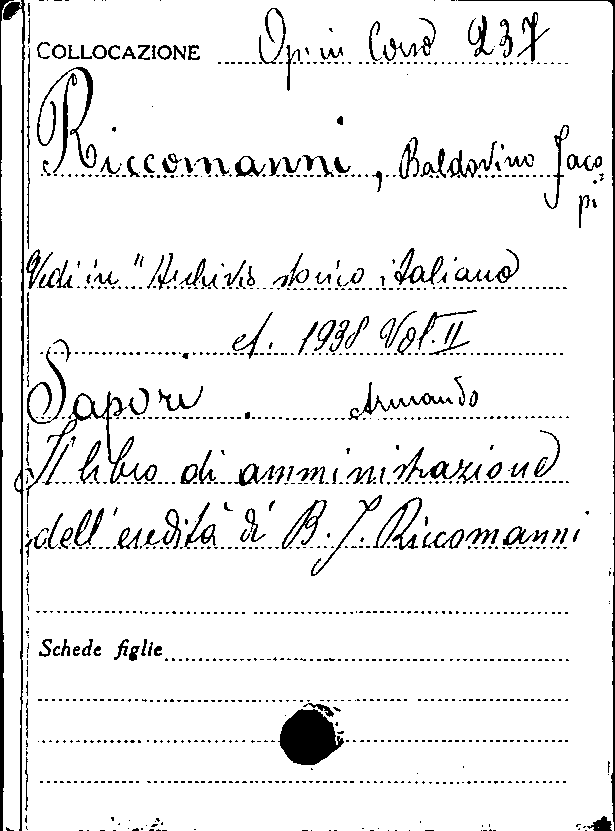 COLLOCAZIONE Op. in Corso 237
Riccomanni, Baldovino Jaco
pi
Vedi in "Archivio storico italiano
a. 1938 Vol. II
Sapori. Armando
Il libro di amministrazione
dell'eredità di B. J. Riccomanni
Schede figlie